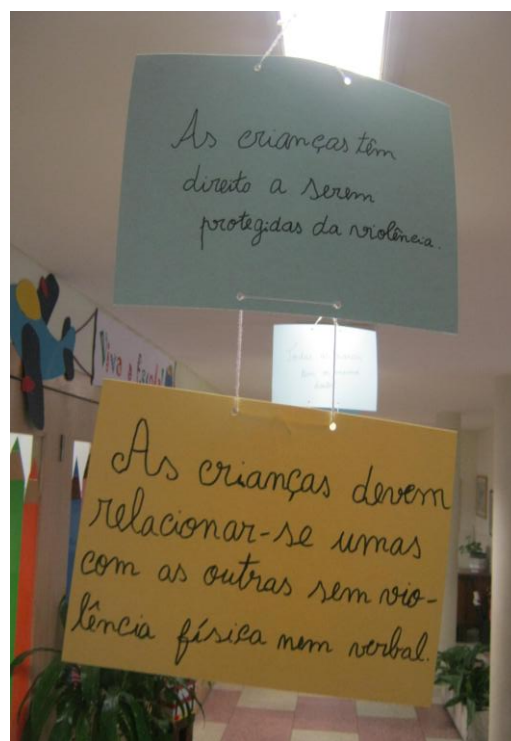 As crianças têm
direito a serem
protegidas da violência.
Viva a Escola!
As crianças devem
relacionar-se umas
com as outras sem vio-
lência física nem verbal.